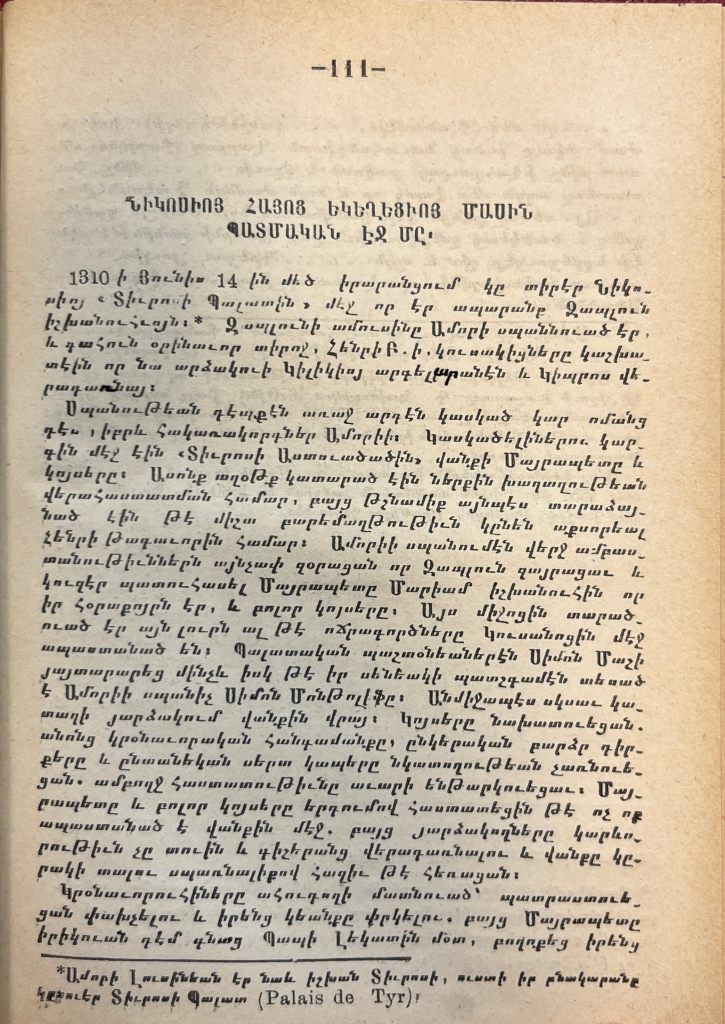 —111—
ՆԻԿՈՍԻՈՅ ՀԱՅՈՑ ԵԿԵՂԵՑԻՈՅ ՄԱՍԻՆ
ՊԱՏՄԱԿԱՆ ԷՋ ՄԸ՛
1310 ի Յունիս 14 ին մեծ իրարանցում կը տիրէր Նիկո-
սիոյ «Տիւրոսի Պալատին» մէջ որ էր ապարանք Զապլուն
իշխանուհւոյն։* Զապլունի ամուսինը Ամորի սպաննուած էր,
և գահուն օրինաւոր տիրոջ, Հենրի Բ. ի, կուսակիցները կաշխա-
տէին որ նա արձակուի Կիլիկիոյ արգելարանէն և Կիպրոս վե-
րադառնայ։
Սպանութեան դէպքէն առաջ արդէն կասկած կար ոմանց
դէմ, իբրև հակառակորդներ Ամորիի։ Կասկածելիներու կար-
գին մէջ էին «Տիւրոսի Աստուածածին» վանքի Մայրապետը և
կոյսերը։ Ասոնք աղօթք կատարած էին ներքին խաղաղութեան
վերահաստատման համար, բայց թշնամիք այնպէս տարաձայ-
նած էին թէ միշտ բարեմաղթութիւն կընեն աքսորեալ
Հենրի թագաւորին համար։ Ամորիի սպանումէն վերջ ամբաս-
տանութիւններն այնչափ զօրացան որ Զապլուն զայրացաւ և
կուզէր պատուհասել Մայրապետը Մարիամ իշխանուհին որ
իր հօրաքոյրն էր, և բոլոր կոյսերը։ Այս միջոցին տարած-
ուած էր այն լուրն ալ թէ ոճրագործները Կուսանոցին մէջ
ապաստանած են։ Պալատական պաշտօնեաներէն Սիմոն Մաշի
յայտարարեց մինչև իսկ թէ իր սենեակի պատշգամէն տեսած
է Ամորիի սպանիչ Սիմոն Մոնթոլիֆը։ Անմիջապէս սկսաւ կա-
տաղի յարձակում վանքին վրայ։ Կոյսերը նախատուեցան.
անոնց կրօնաւորական հանգամանքը, ընկերական բարձր դիր-
քերը և ընտանեկան սերտ կապերը նկատողութեան չառնուե-
ցան. ամբողջ հաստատութիւնը աւարի ենթարկուեցաւ։ Մայ-
րապետը և բոլոր կոյսերը երդումով հաստատեցին թէ ոչ ոք
ապաստանած է վանքին մէջ. բայց յարձակողները կարևո-
րութիւն չը տուին և գիշերանց վերադառնալու և վանքը կը-
րակի տալու սպառնալիքով հազիւ թէ հեռացան։
Կրօնաւորուհիները ահուդողի մատնուած՝ պատրաստուե-
ցան փախչելու և իրենց կեանքը փրկելու. բայց Մայրապետը
իրիկուան դէմ գնաց Պապի Լեկատին մօտ, բողոքեց իրենց
*Ամորի Լուսինեան էր նաև իշխան Տիւրոսի, ուստի իր բնակարանը
կըսուէր Տիւրոսի Պալատ (Palais de Tyr)։